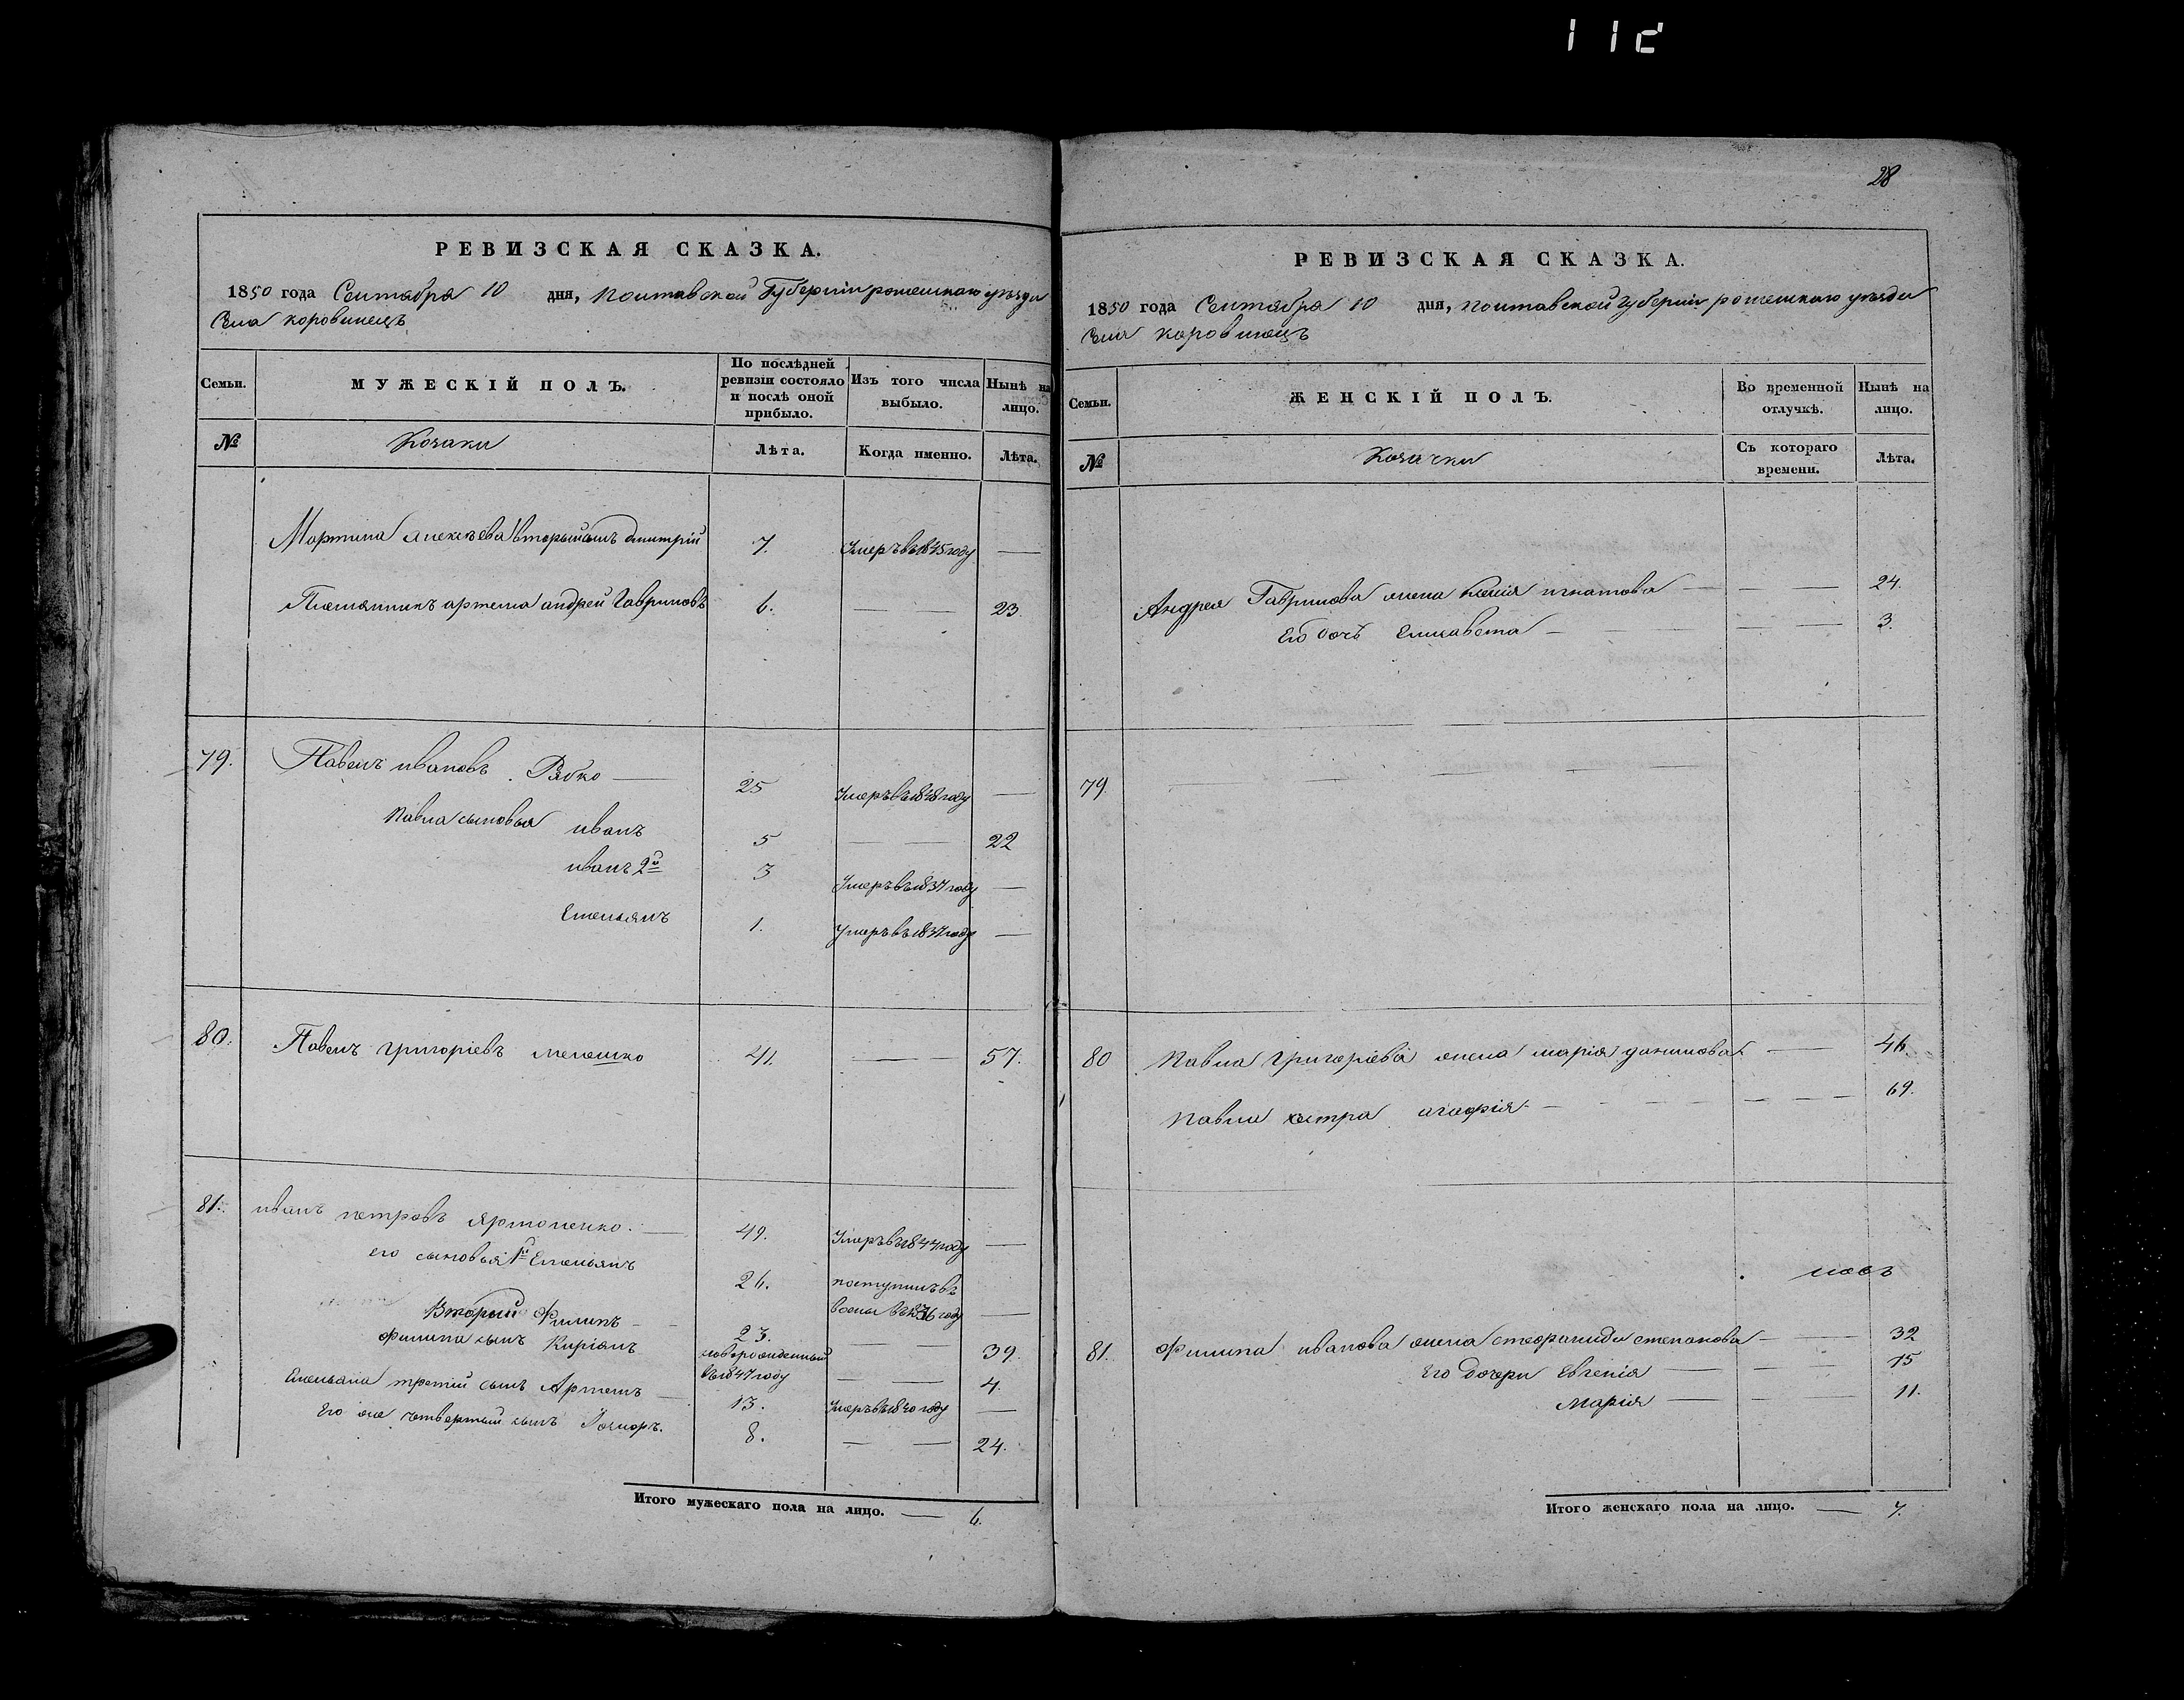 28
РЕВИЗСКАЯ СКАЗКА.
1850 года Сентября 10 дня, Полтавской Губерніи роменскаго уѣзда
Села коровинецъ
Семьи.
МУЖЕСКІЙ ПОЛЪ.
По послѣдней ревизіи состояло и послѣ оной прибыло.
Изъ того числа выбыло.
Нынѣ на лицо.
№
Козаки
Лѣта.
Когда именно.
Лѣта.
Мартина Алексѣева вторый сынъ дмитрій 7. Умеръ въ 1845 году —
Племянникъ артема андрей Гавриловъ 6. — — 23.
79. Павелъ ивановъ Рябко — 25 Умеръ въ 1848 году —
Павла сыновья иванъ 5 — — 22
иванъ 2й 3 Умеръ въ 1837 году —
Емельянъ 1. Умеръ въ 1837 году —
80. Павелъ григоріевъ мелешко 41. — — 57.
81. иванъ петровъ Ярмоленко. — 49. Умеръ въ 1844 году —
его сыновья 1й Емельянъ 26. поступилъ въ
воены въ 1836 году —
Вторый Филипъ — 23. — — 39.
Филипа сынъ Киріанъ новорожденный
въ 1847 году — — 4.
Емельяна третій сынъ Артемъ — 13. Умеръ въ 1840 году —
Его же четвертый сынъ 8. — — 24.
Итого мужескаго пола на лицо. — 6.
РЕВИЗСКАЯ СКАЗКА.
1850 года Сентября 10 дня, полтавской губерніи роменскаго уѣзда
Села коровинецъ
Семьи.
ЖЕНСКІЙ ПОЛЪ.
Во временной отлучкѣ.
Нынѣ на лицо.
№
Козачки
Съ котораго времени.
Лѣта.
Андрея Гаврилова жена игнатова — — — 24.
Его дочь Елисавета — — — 3.
79. — — — —
80 Павла григоріева жена марія данилова — 46.
Павла сестра агафія — — — 69.
81. Филипа иванова жена стефанида степанова — — 32
Его дочери Евгенія — — 15
Марія — — — 11.
Итого женскаго пола на лицо. — 7.